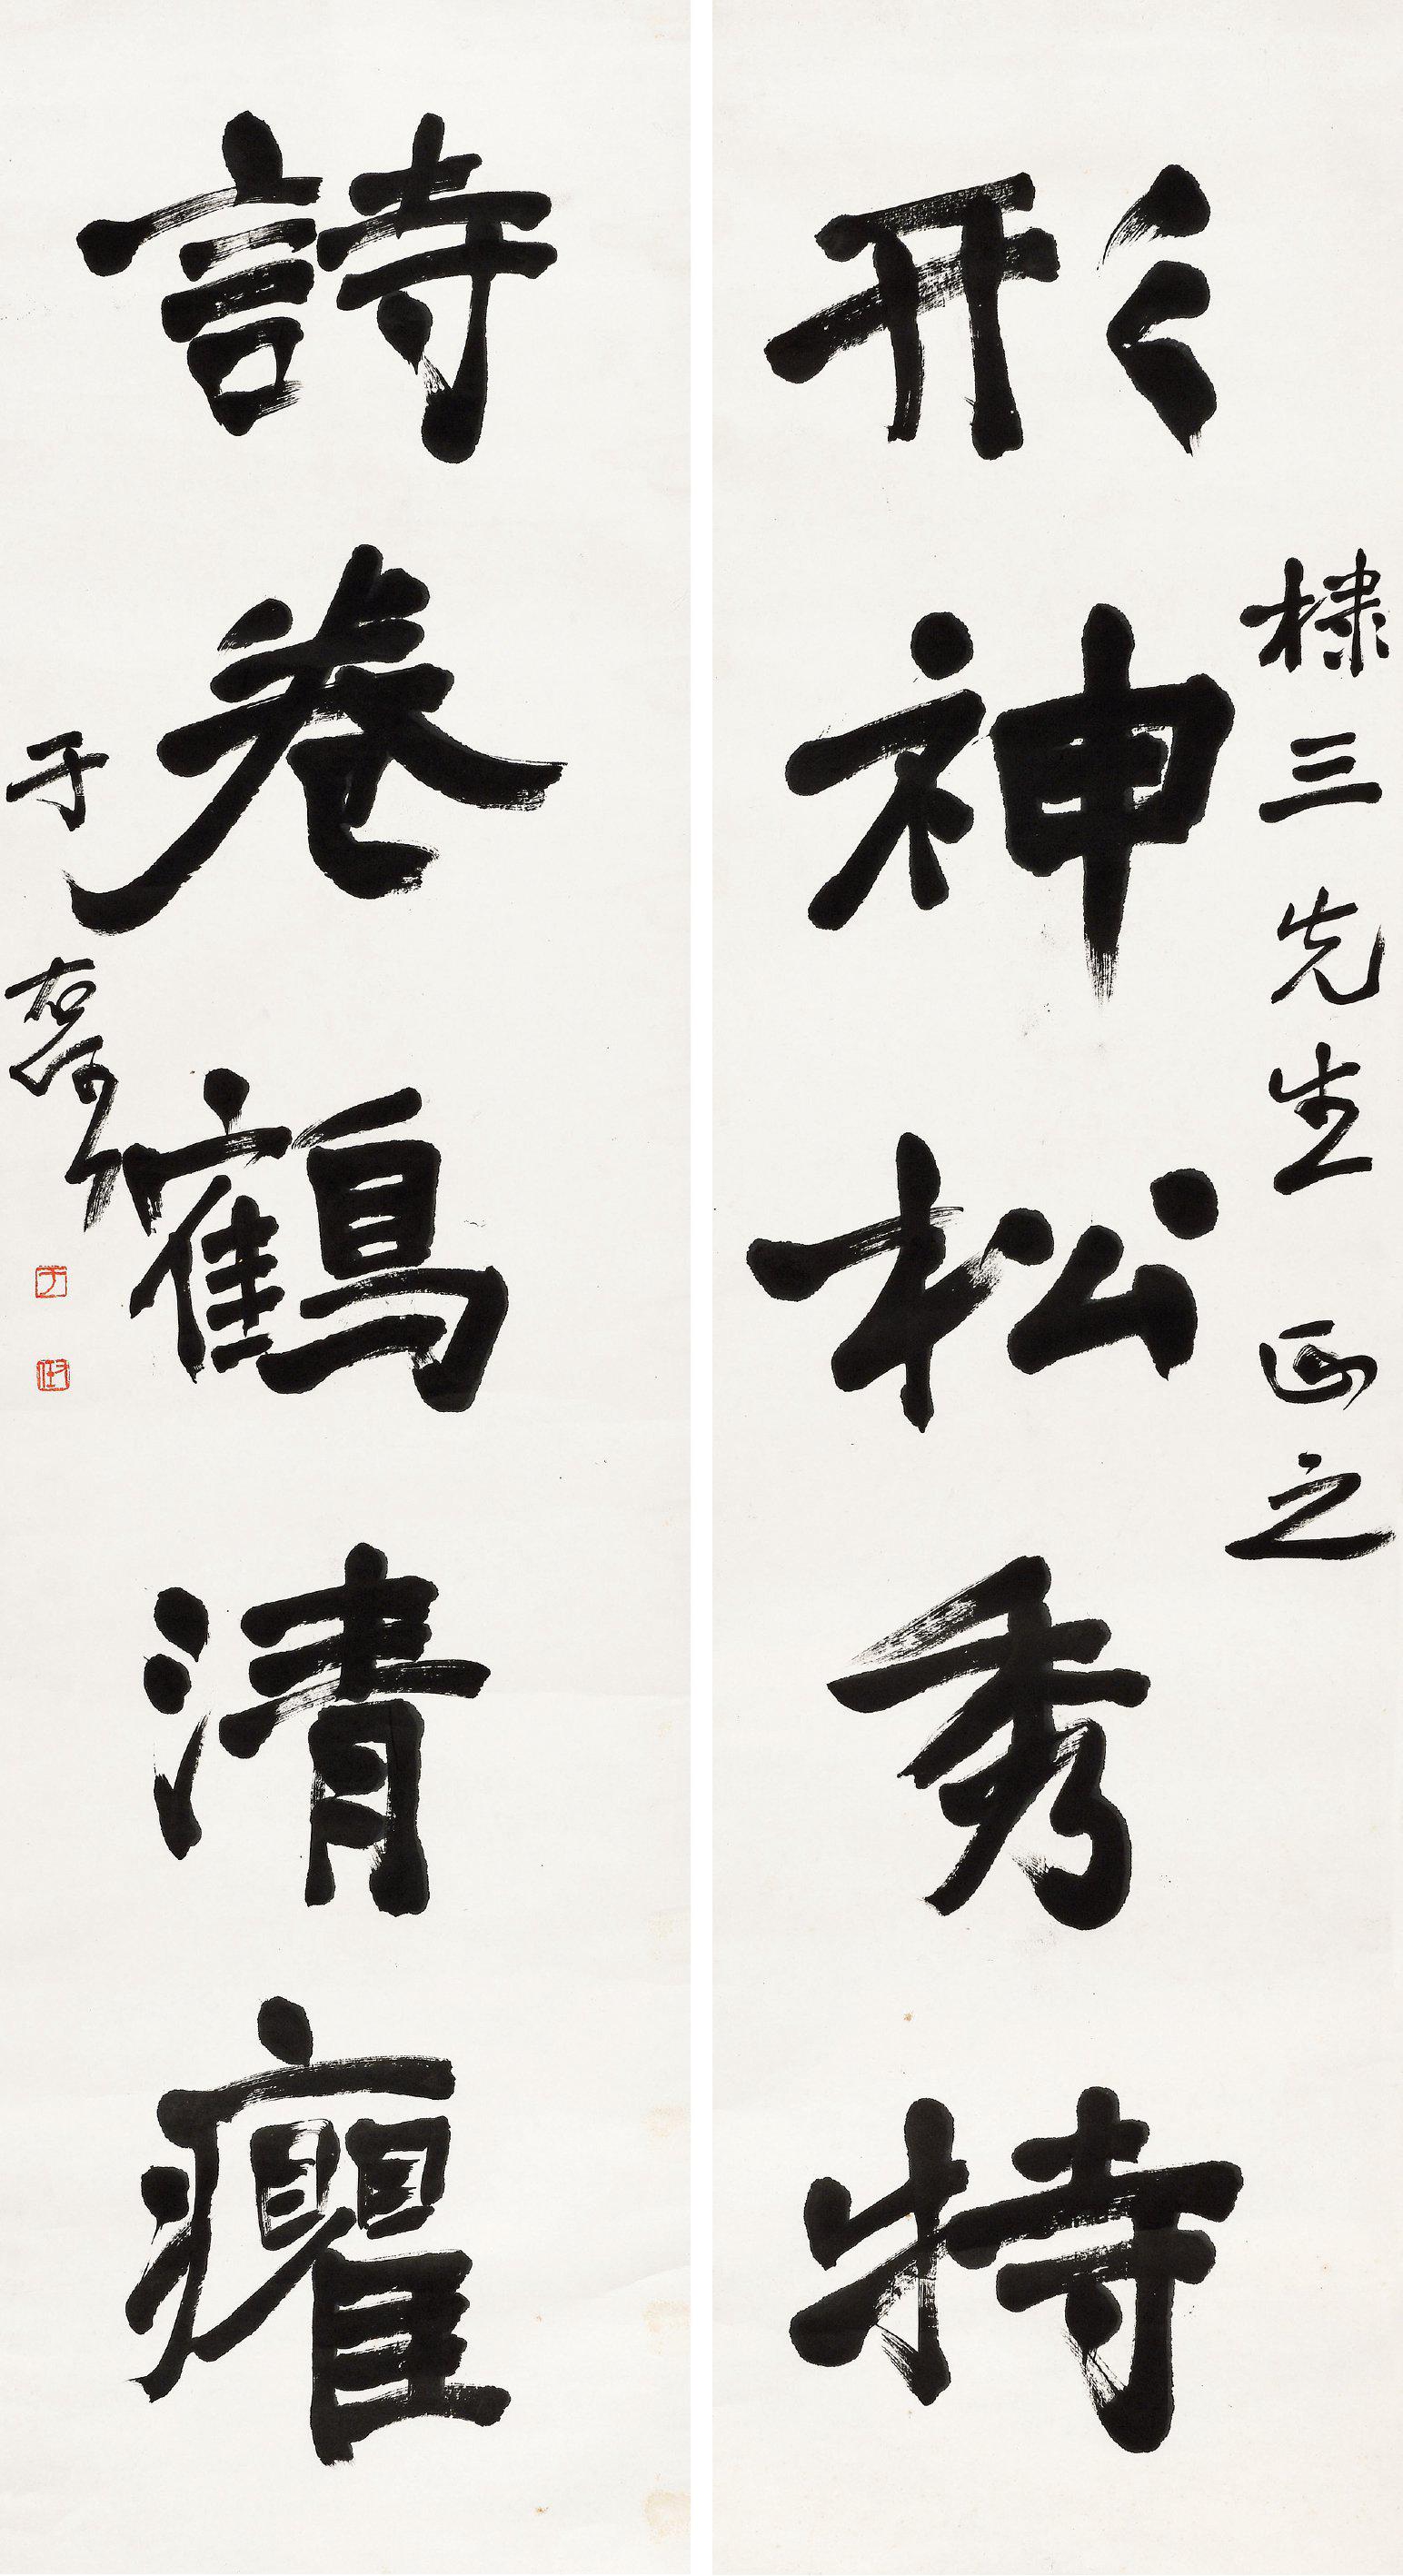 棣三先生正之
形神松秀特
詩卷鶴清癯
于右任
于右任